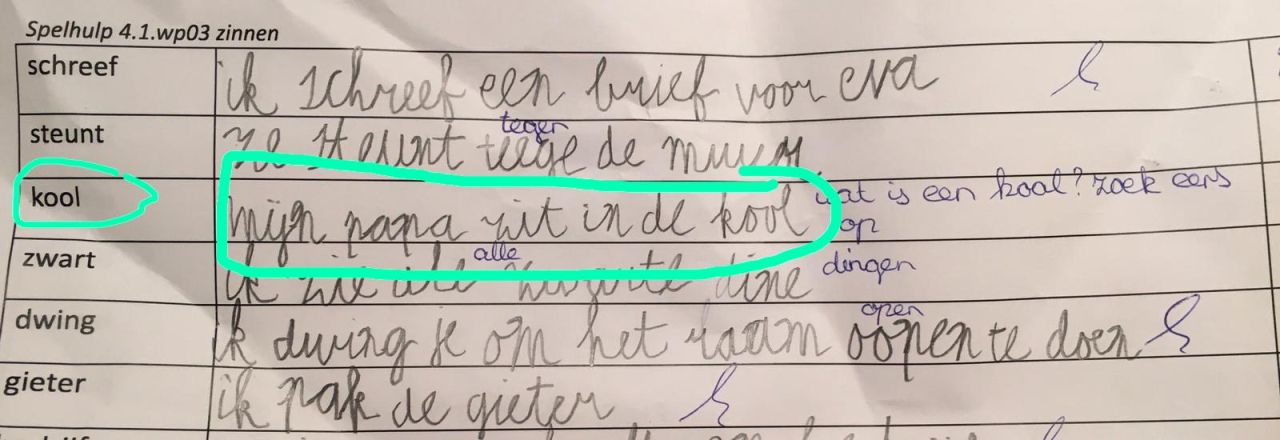 Spelhulp 4.1.wp03 zinnen
schreef ik schreef een brief voor eva
tegen
steunt ze steunt teege de muur
kool mijn papa zit in de kool wat is een kool? zoek eers
op
alle
zwart ik zie ale zwarte dine dingen
open
dwing ik dwing je om het raam oopen te doen
gieter ik pak de gieter